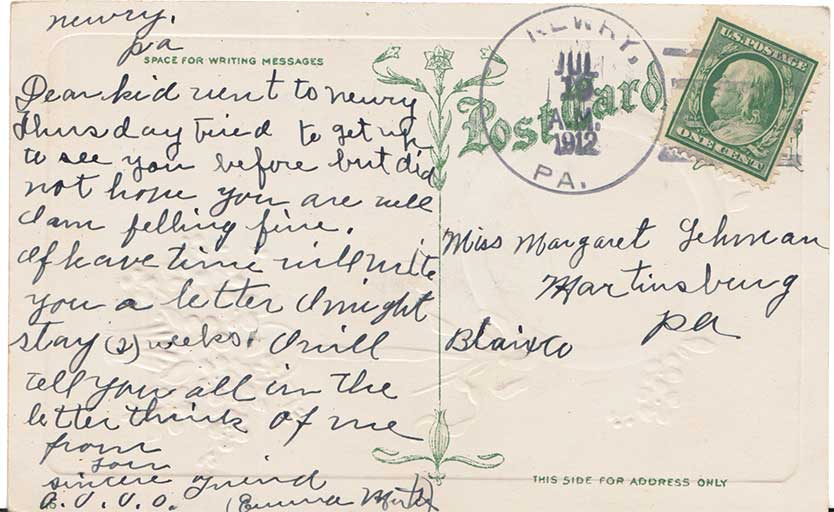 newry,
pa
SPACE FOR WRITING MESSAGES
Dear kid went to newry
thursday tried to get up
to see you before but did
not hope you are well
I am felling fine.
If have time will write
you a letter I might
stay (2) weeks. I will
tell you all in the
letter think of me
from
your
sincere friend
(Emma
Post Card
NEWRY,
JUL
A.M.
1912
PA.
U.S. POSTAGE
ONE CENT
Miss Margaret Lehman
Martinsburg
Pa
Blair Co
THIS SIDE FOR ADDRESS ONLY